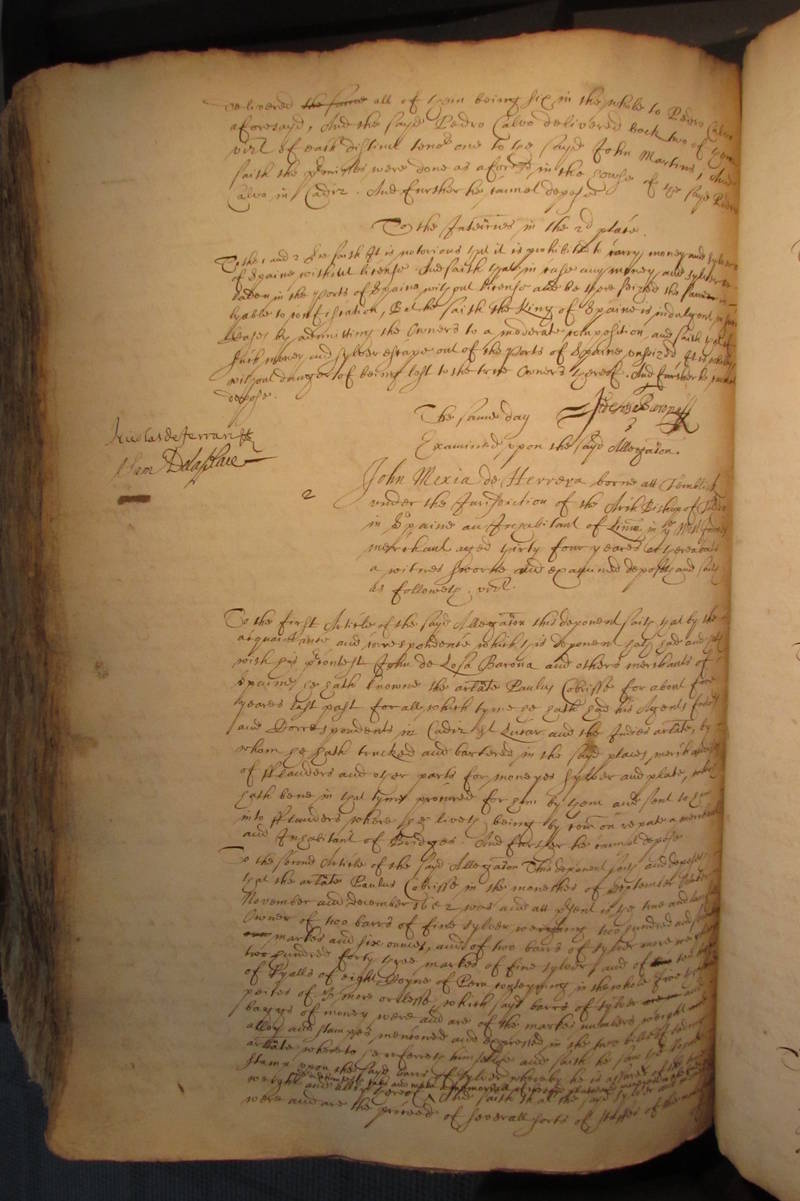 delivered the same all of them being six in the whole to Pedro Calvo
aforesayd, And the sayd Pedro Calvo delivered back two of them
vizt of each distinct tenor one to the sayd John Martins, And
saith the premisses were done as aforesd in the house of the sayd Pedro
Calvo in Cadiz. And further he cannot depose
To the Interries in the 2d place.
To the 1 and 2 hee saith It is notorious that it is prohibited to carry money and sylver
of Spaine without license And saith that in case any money and sylver be
taken in the Ports of Spaine without license and be there seized the same is
lyable to confiscation, But he saith the King of Spaine is indulgent in such
Cases by admitting the Owners to a moderate composition, and saith that if
such money and sylver escape out of the Ports of Spaine unseized It is
without danger of being lost to the true Owners thereof. And further he cannot
depose.
The same day
Examined upon the sayd Allegation.
Nicolas de
2
John Mexia de Herrera borne att
under the Jurisdiction of the Arch Bishop of
in Spaine an Inhabitant of Lima in the West Indies
merchant aged thirty four yeares or thereabouts
a witnes sworne and examined deposeth and saith
as followeth. vizt.
To the first Article of the sayd Allegation this deponent saith that by the
acquaintance and correspondence which this deponent hath had and
with his Contest John de Losa Barona and others merchants of
Spaine he hath knowne the arlate Paulus Cobrisse for about five
yeares last past for all which tyme he hath had his Agents
and Correspondents in Cadiz St Lucar and the Indies arlate, by
whom he hath trucked and bartered in the sayd places, merchandizes
of fflanders and other parts for moneyes sylver and plate, which
hath bene in that tyme procured for him by them and sent to him
into fflanders where he liveth being by comon repute a merchant
and Inhabitant of Bridges. And further he cannot depose
To the second Article of the sayd Allegation This deponent saith and deposeth
that the arlate Paulus Cobrisse in the monethes of September October
November and December 1652 was and att present is the true and lawfull
Owner of two barrs of fine sylver weighing two hundred and
markes and six ounces, and of two barrs of sylver more weighing
two hundred forty three markes of fine sylver and of
of Ryalls of eight Coyne of Peru conteyning in the whole five
peices of 8/8 more or lesse, which sayd barrs of sylver and
baggs of money were and are of the markes numbers weight
alloy and stampes mentioned and expressed in the two bills of lading
arlate whereto he referreth himselfe and saith he saw the
stamp upon the sayd barrs of sylver whereby he is assured of the
weight and alloy thereof And saith that the sayd sylver
were and are the proceed of severall sorts of stuffes of the